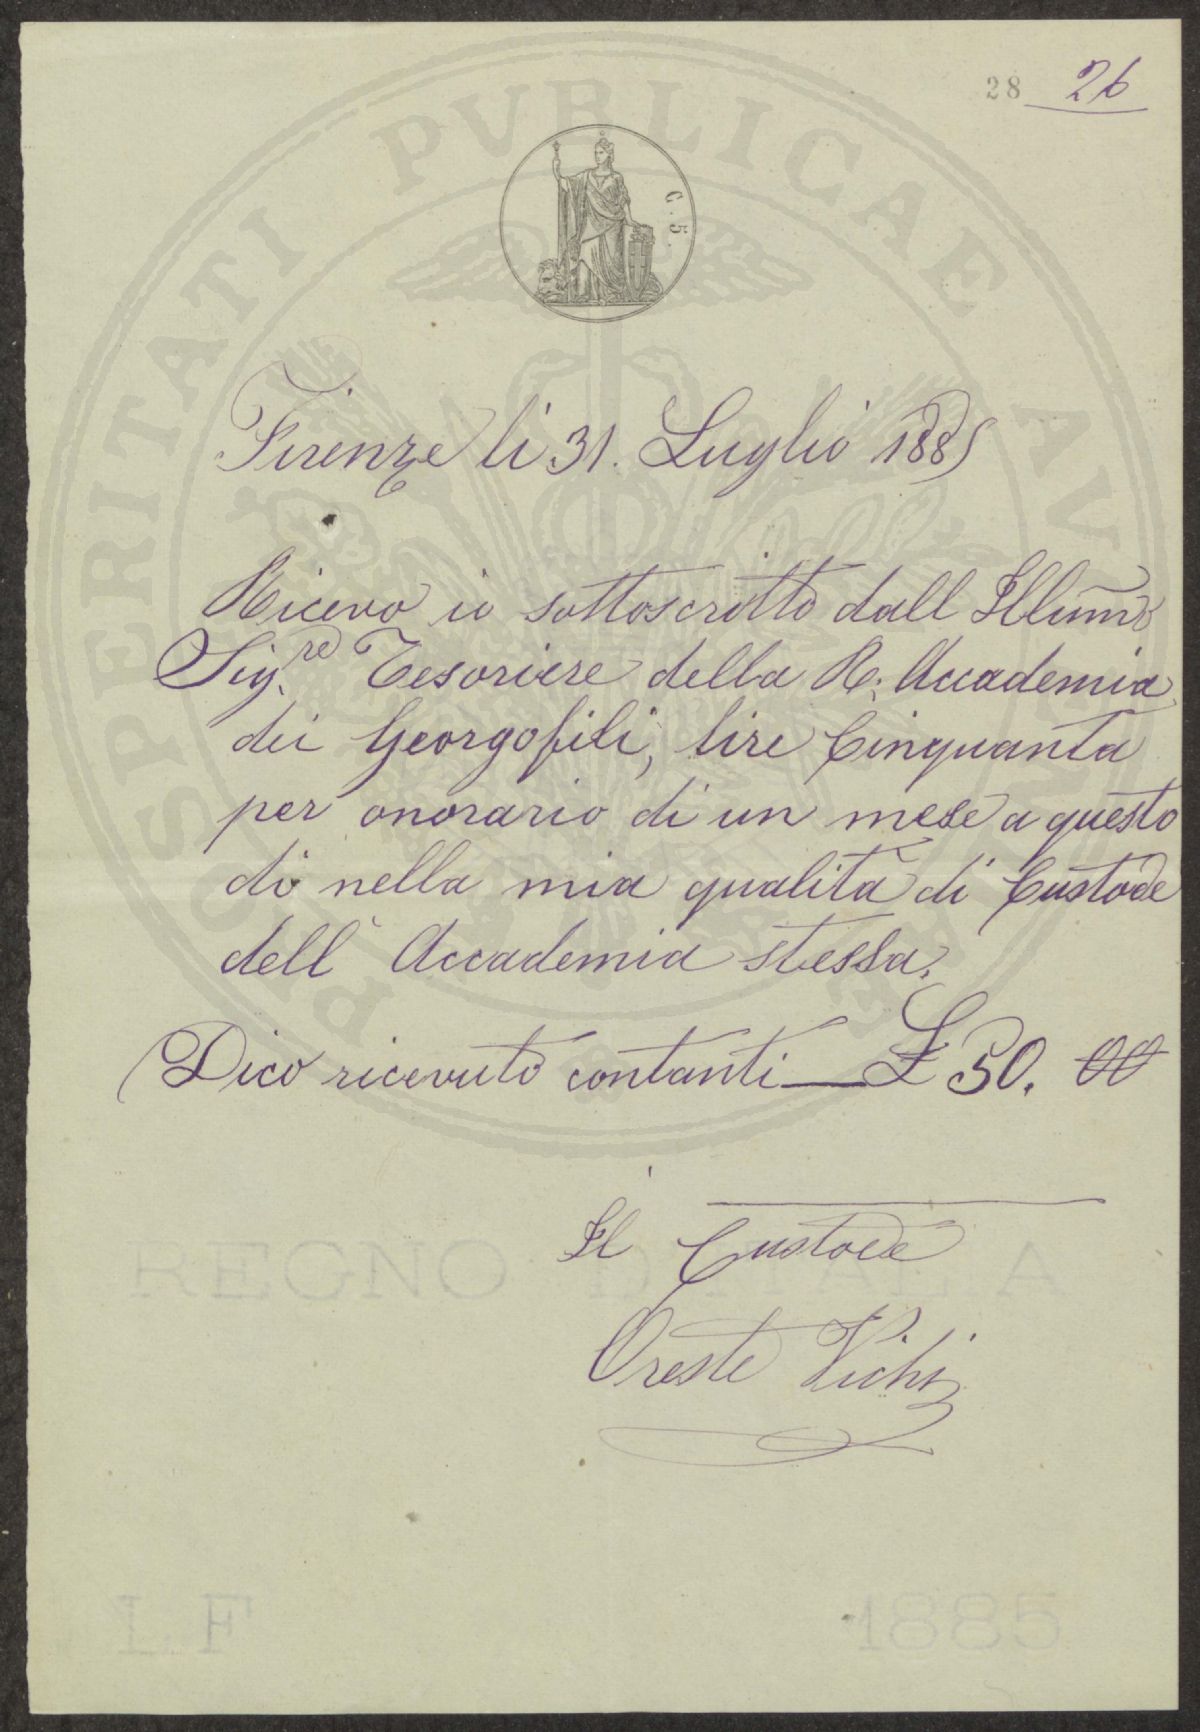 28 26
PROSPERITATI PVBLICAE AVGENDAE
C. 5.
Firenze li 31. Luglio 1885
Ricevo io sottoscritto dall Illumo
Sig.re Tesoriere della R. Accademia
dei Georgofili, lire Cinquanta
per onorario di un mese a questo
dì nella mia qualità di Custode
dell' Accademia stessa.
Dico ricevuto contanti — £ 50. 00
Il Custode
REGNO D'ITALIA
Oreste Vichi
L.F 1885